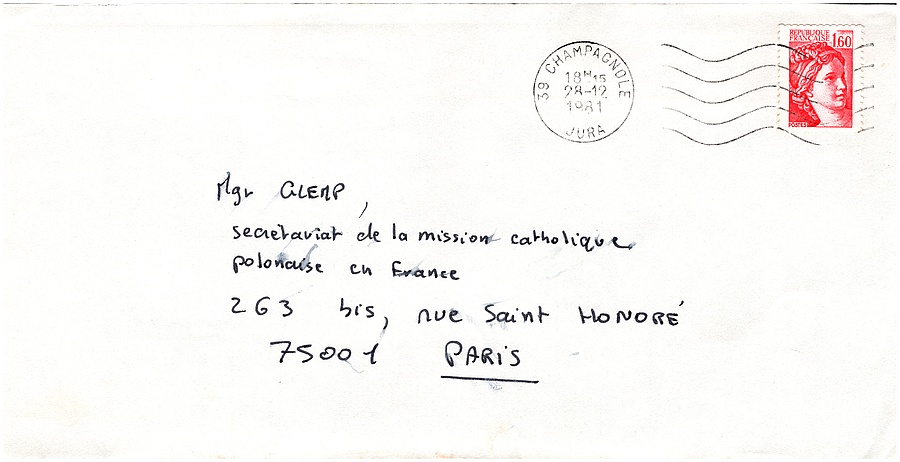 39 CHAMPAGNOLE
18H15
28-12
1981
JURA
REPUBLIQUE
FRANÇAISE 1,60
POSTES
Mgr GLEMP,
secrétariat de la mission catholique
polonaise en France
263 bis, rue Saint HONORÉ
75001 PARIS